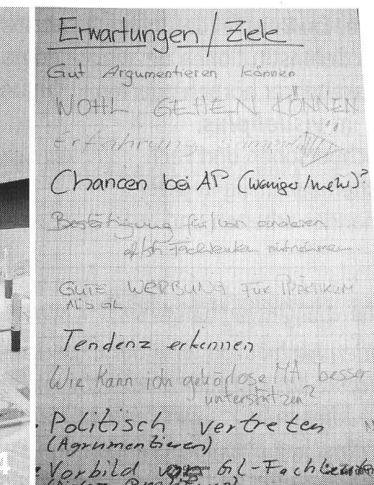 Erwartungen / Ziele
Gut Argumentieren können
WOHL GEHEN KÖNNEN
Erfahrung
Chancen bei AP (weniger/mehr)?
Bestätigung für/von anderen
Fachleuten mitnehmen
GUTE WERBUNG FÜR PRAKTIKUM
ALS GL
Tendenz erkennen
Wie kann ich gehörlose MA besser
unterstützen?
· Politisch vertreten
(Agrumentieren)
· Vorbild von Gl-Fachleuten
4